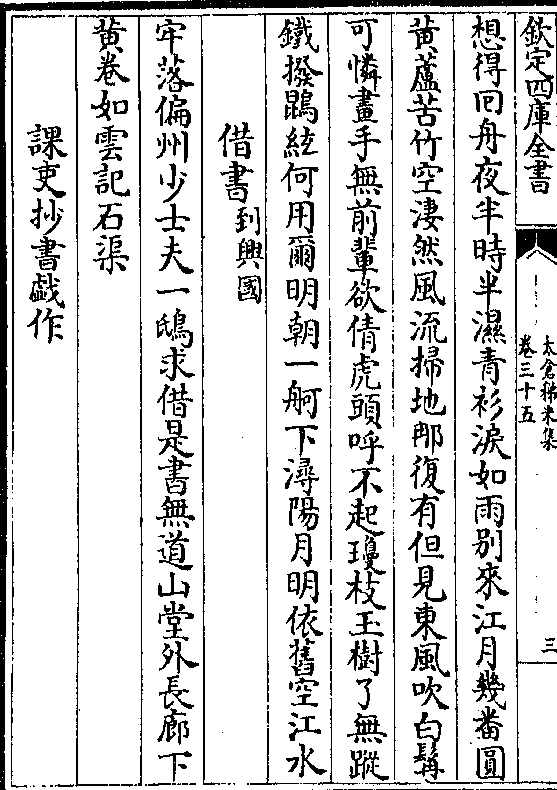 欽定四庫全書
太倉稊米集
卷三十五
三
想得回舟夜半時半濕青衫淚如雨别來江月幾番圓
黄蘆苦竹空凄然風流掃地那復有但見東風吹白髯
可憐畫手無前輩欲倩虎頭呼不起瓊枝玉樹了無蹤
鐵撥鵾絃何用爾明朝一舸下潯陽月明依舊空江水
借書到興國
牢落偏州少士夫一鴟求借是書無道山堂外長廊下
黄卷如雲記石渠
課吏抄書戯作